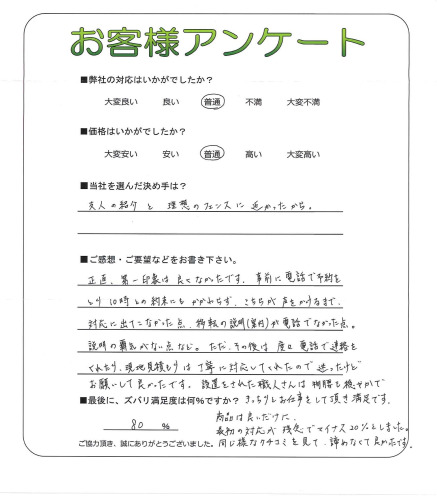 お客様アンケート
■弊社の対応はいかがでしたか?
大変良い 良い 普通 不満 大変不満
■価格はいかがでしたか?
大変安い 安い 普通 高い 大変高い
■当社を選んだ決め手は?
友人の紹介と 理想のフェンスに近かったから。
■ご感想・ご要望などをお書き下さい。
正直、第一印象は良くなかったです。事前に電話で予約を
とり 10時との約束にもかかわらず、こちらが声をかけるまで、
対応に出てこなかった点、移転の説明(案内)が電話でなかった点。
説明の覇気がない点など。ただ、その後は 度々電話で連絡を
くれたり、現地見積もりは丁寧に対応してくれたので迷ったけど
お願いして良かったです。設置をされた職人さんは 物腰も穏やかで
■最後に、ズバリ満足度は何%ですか? きっちりとお仕事をして頂き満足です。
80 %
商品は良いだけに、
最初の対応が残念でマイナス20%としました。
ご協力頂き、誠にありがとうございました。 同じ様なクチコミを見て、諦めなくて良かったです。